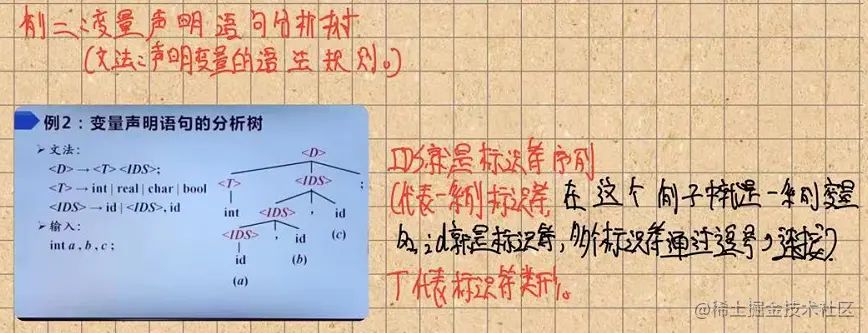 例二:变量声明语句分析树
(文法:声明变量的语法规则。)
例2：变量声明语句的分析树
文法：
<D> → <T> <IDS>;
<T> → int | real | char | bool
<IDS> → id | <IDS>, id
输入：
int a , b , c ;
<D>
<T> <IDS> ;
int <IDS> , id
(c)
<IDS> , id
(b)
id
(a)
IDS就是标识符序列
(代表一系列标识符,在这个例子中就是一系列变量
名,id就是标识符,多个标识符通过逗号,连接)
T代表标识符类型。
@稀土掘金技术社区